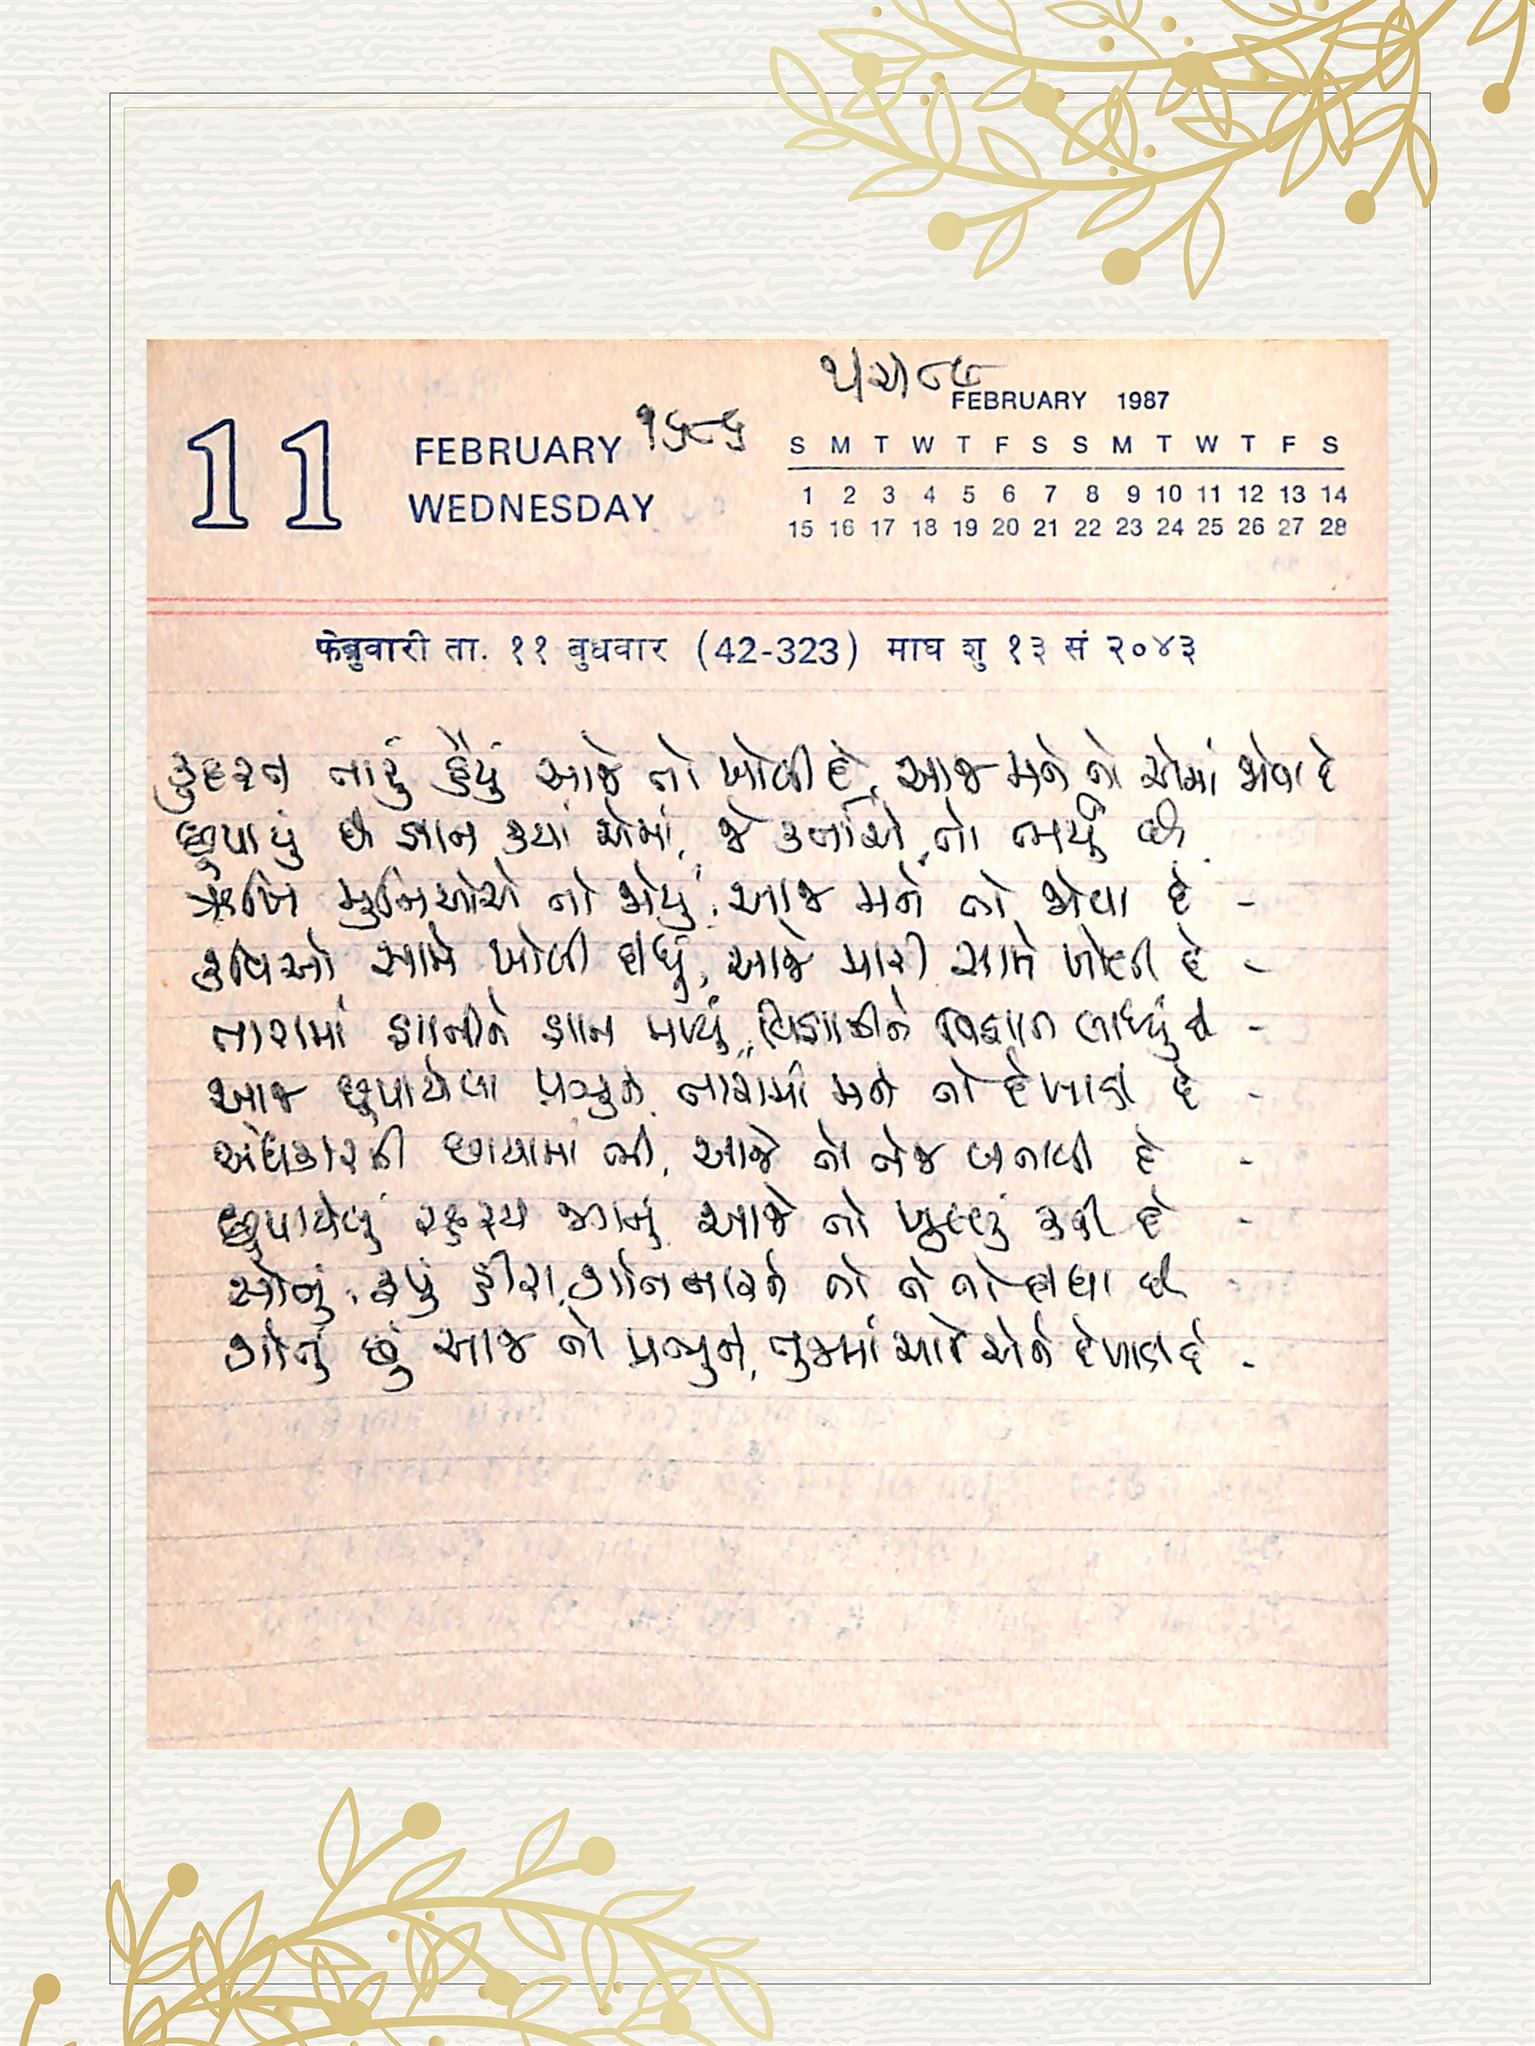 ૫/૨/૮૮
FEBRUARY 1987
11 FEBRUARY ૧૬૮૬ S M T W T F S S M T W T F S
WEDNESDAY 1 2 3 4 5 6 7 8 9 10 11 12 13 14
15 16 17 18 19 20 21 22 23 24 25 26 27 28
फेब्रुवारी ता. ११ बुधवार (42-323) माघ शु १३ सं २०४३
કુદરત તારું હૈયું આજે તો ખોલી દે, આજ મને તો એમાં જોવા દે
છુપાયું છે જ્ઞાન ક્યાં એમાં, જે કર્તાએ તો ભર્યું છે
ઋષિ મુનિઓએ તો જોયું, આજ મને તો જોવા દે -
કવિઓ સામે ખોલી દીધું, આજે મારી સામે ખોલી દે -
તારામાં જ્ઞાનીને જ્ઞાન મળ્યું, વિજ્ઞાનીને વિજ્ઞાન લાધ્યું છે -
આજ છુપાયેલા પ્રભુને, તારામાં મને તો દેખાડી દે -
અંધકારની છાયામાં ભી, આજે તો તેજ બનાવી દે -
છુપાયેલું રહસ્ય જગનું આજે તો ખુલ્લું કરી દે -
સોનું, રૂપું હીરા, ગોતનારને તો તે તો દીધા છે
ગોતું છું આજ તો પ્રભુને, તુજમાં મારે એને દેખાડી દે -